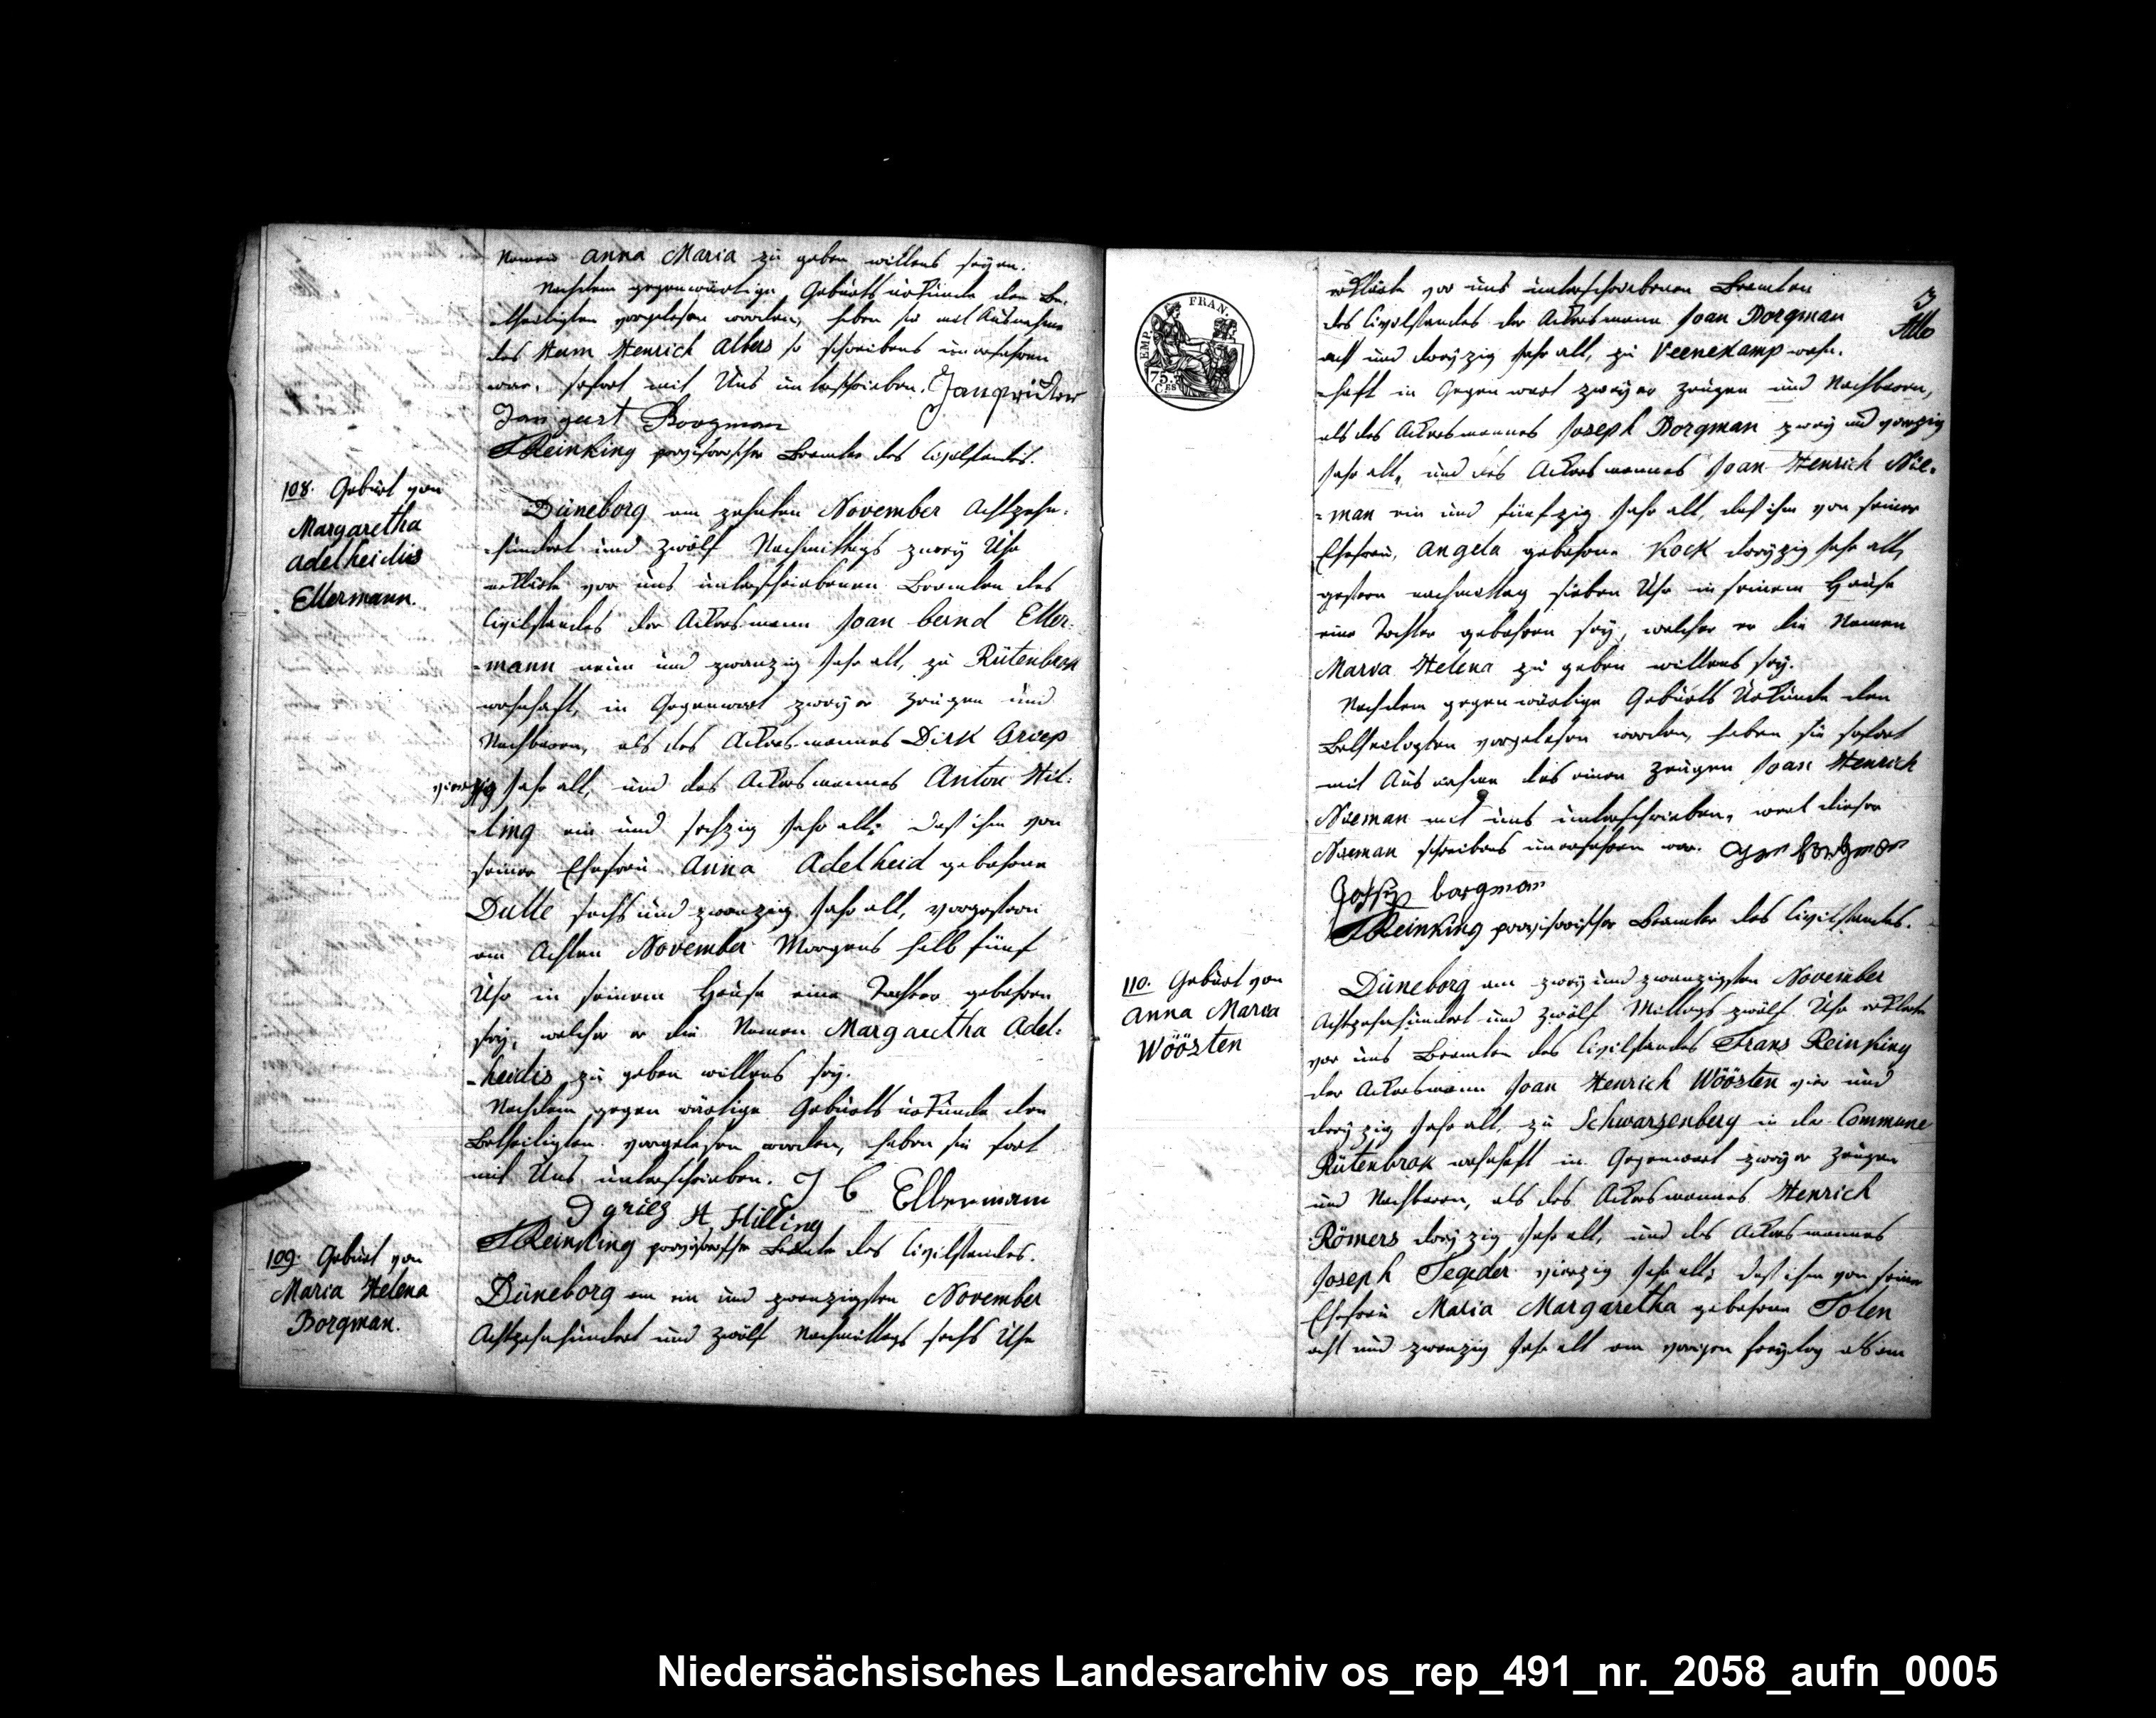 Namen Anna Maria zu geben willens seyen.
Nachdem gegenwärtige Geburts urkunde den Be-
theiligten vorgelesen worden, haben sie mit Ausnahme
des Herm Henrich Albers so schreibens unerfahren
war, sofort mit Uns unterschrieben.
Jan gert Borgman
FReinking provisorischer Beamter des Civilstandes.
108. Geburt von
Margaretha
Adelheidis
Ellermann.
Düneborg am zehnten November Achtzehn-
hundert und zwölf Nachmittags zwey Uhr
erklärte vor uns unterschriebenen Beamten des
Civilstandes der Ackersmann Joan bernd Eller-
=mann neun und zwanzig Jahr alt, zu Rütenbrok
wohnhaft, in Gegenwart zweyer Zeugen und
Nachbaren, als des Ackersmannes Dirk Griep
vierzig Jahr alt, und des Ackersmannes Anton Hil-
-ling ein und sechzig Jahr alt; daß ihm von
seiner Ehefrau Anna Adelheid gebohrne
Dulle sechs und zwanzig Jahr alt, vorgestern
am Achten November Morgens halb fünf
Uhr in seinem Hause eine Tochter gebohren
sey, welcher er die Namen Margaretha Adel-
-heidis zu geben willens sey.
Nachdem gegenwärtige Geburts urkunde den
Betheiligten vorgelesen worden, haben sie fort
mit Uns unterschrieben. J B Ellermann
D griep H Hilling
FReinking provisorischer Beamte des Civilstandes.
109. Geburt von
Maria Helena
Borgman.
Düneborg am ein und zwanzigsten November
Achtzehnhundert und zwölf Nachmittags sechs Uhr
EMP. FRAN.
75.
CES
3
erklärte vor uns unterschriebenen Beamten
des Civilstandes der Ackersmann Joan Borgman
acht und dreyzig Jahr alt, zu Veenekamp wohn-
-haft in Gegenwart zweyer Zeugen und Nachbaren,
als des Ackersmannes Joseph Borgman zwey und vierzig
Jahr alt, und des Ackersmannes Joan Henrich Nie-
=man ein und fünfzig Jahr alt, daß ihm von seiner
Ehefrau, Angela gebohrne Kock dreyzig Jahr alt,
gestern nachmittag sieben Uhr in seinem Hause
eine Tochter gebohren sey, welcher er die Namen
Maria Helena zu geben willens sey.
Nachdem gegenwärtige Geburts Urkunde den
Betheiligten vorgelesen worden, haben sie sofort
mit Ausnahme des einen Zeugen Joan Henrich
Nieman mit uns unterschrieben, weil dieser
Nieman schreibens unerfahren war.
borgman
FReinking provisorischer Beamter des Civilstandes.
110. Geburt von
Anna Maria
Wöösten
Düneborg am zwey und zwanzigsten November
Achtzehnhundert und zwölf Mittags zwölf Uhr erklärte
vor uns Beamten des Civilstandes Frans Reinking
der Ackersmann Joan Henrich Wöösten vier und
dreyzig Jahr alt, zu Schwarzenberg in der Commune
Rütenbrok wohnhaft in Gegenwart zweyer Zeugen
und Nachbaren, als des Ackersmannes Henrich
Römers dreyzig Jahr alt, und des Ackersmannes
Joseph Tegeder vierzig Jahr alt; daß ihm von seiner
Ehefrau Maria Margaretha gebohrne Tolen
acht und zwanzig Jahr alt am vorigen freytag als am
Niedersächsisches Landesarchiv os_rep_491_nr._2058_aufn_0005